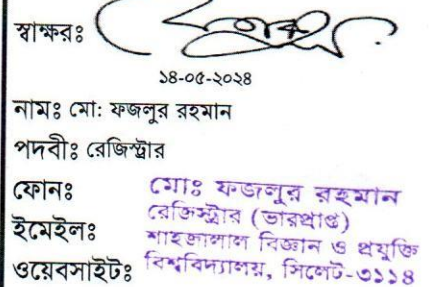 স্বাক্ষরঃ
১৪-০৫-২০২৪
নামঃ মো: ফজলুর রহমান
পদবীঃ রেজিস্ট্রার
ফোনঃ
ইমেইলঃ
ওয়েবসাইটঃ
মোঃ ফজলুর রহমান
রেজিস্ট্রার (ভারপ্রাপ্ত)
শাহজালাল বিজ্ঞান ও প্রযুক্তি
বিশ্ববিদ্যালয়, সিলেট-৩১১৪